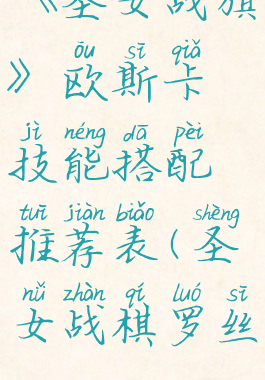 《圣女战旗
ōu sī qiǎ
》欧斯卡
jì néng dā pèi
技能搭配
tuī jiàn biǎo shèng
推荐表(圣
nǚ zhàn qí luó sī
女战棋罗丝